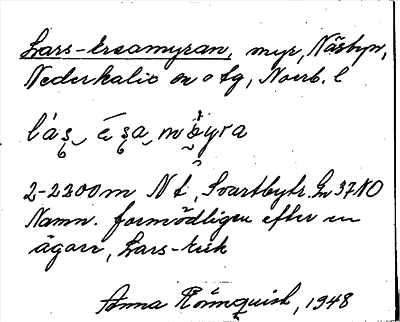 Lars-Ersamyran, myr, Näsbyn,
Nederkalix sn o tg, Norrb. l
2-2200 m N f, Svartbytr.
Namn. förmodligen efter en
ägare, Lars-Erik
Anna Rönnquist, 1948